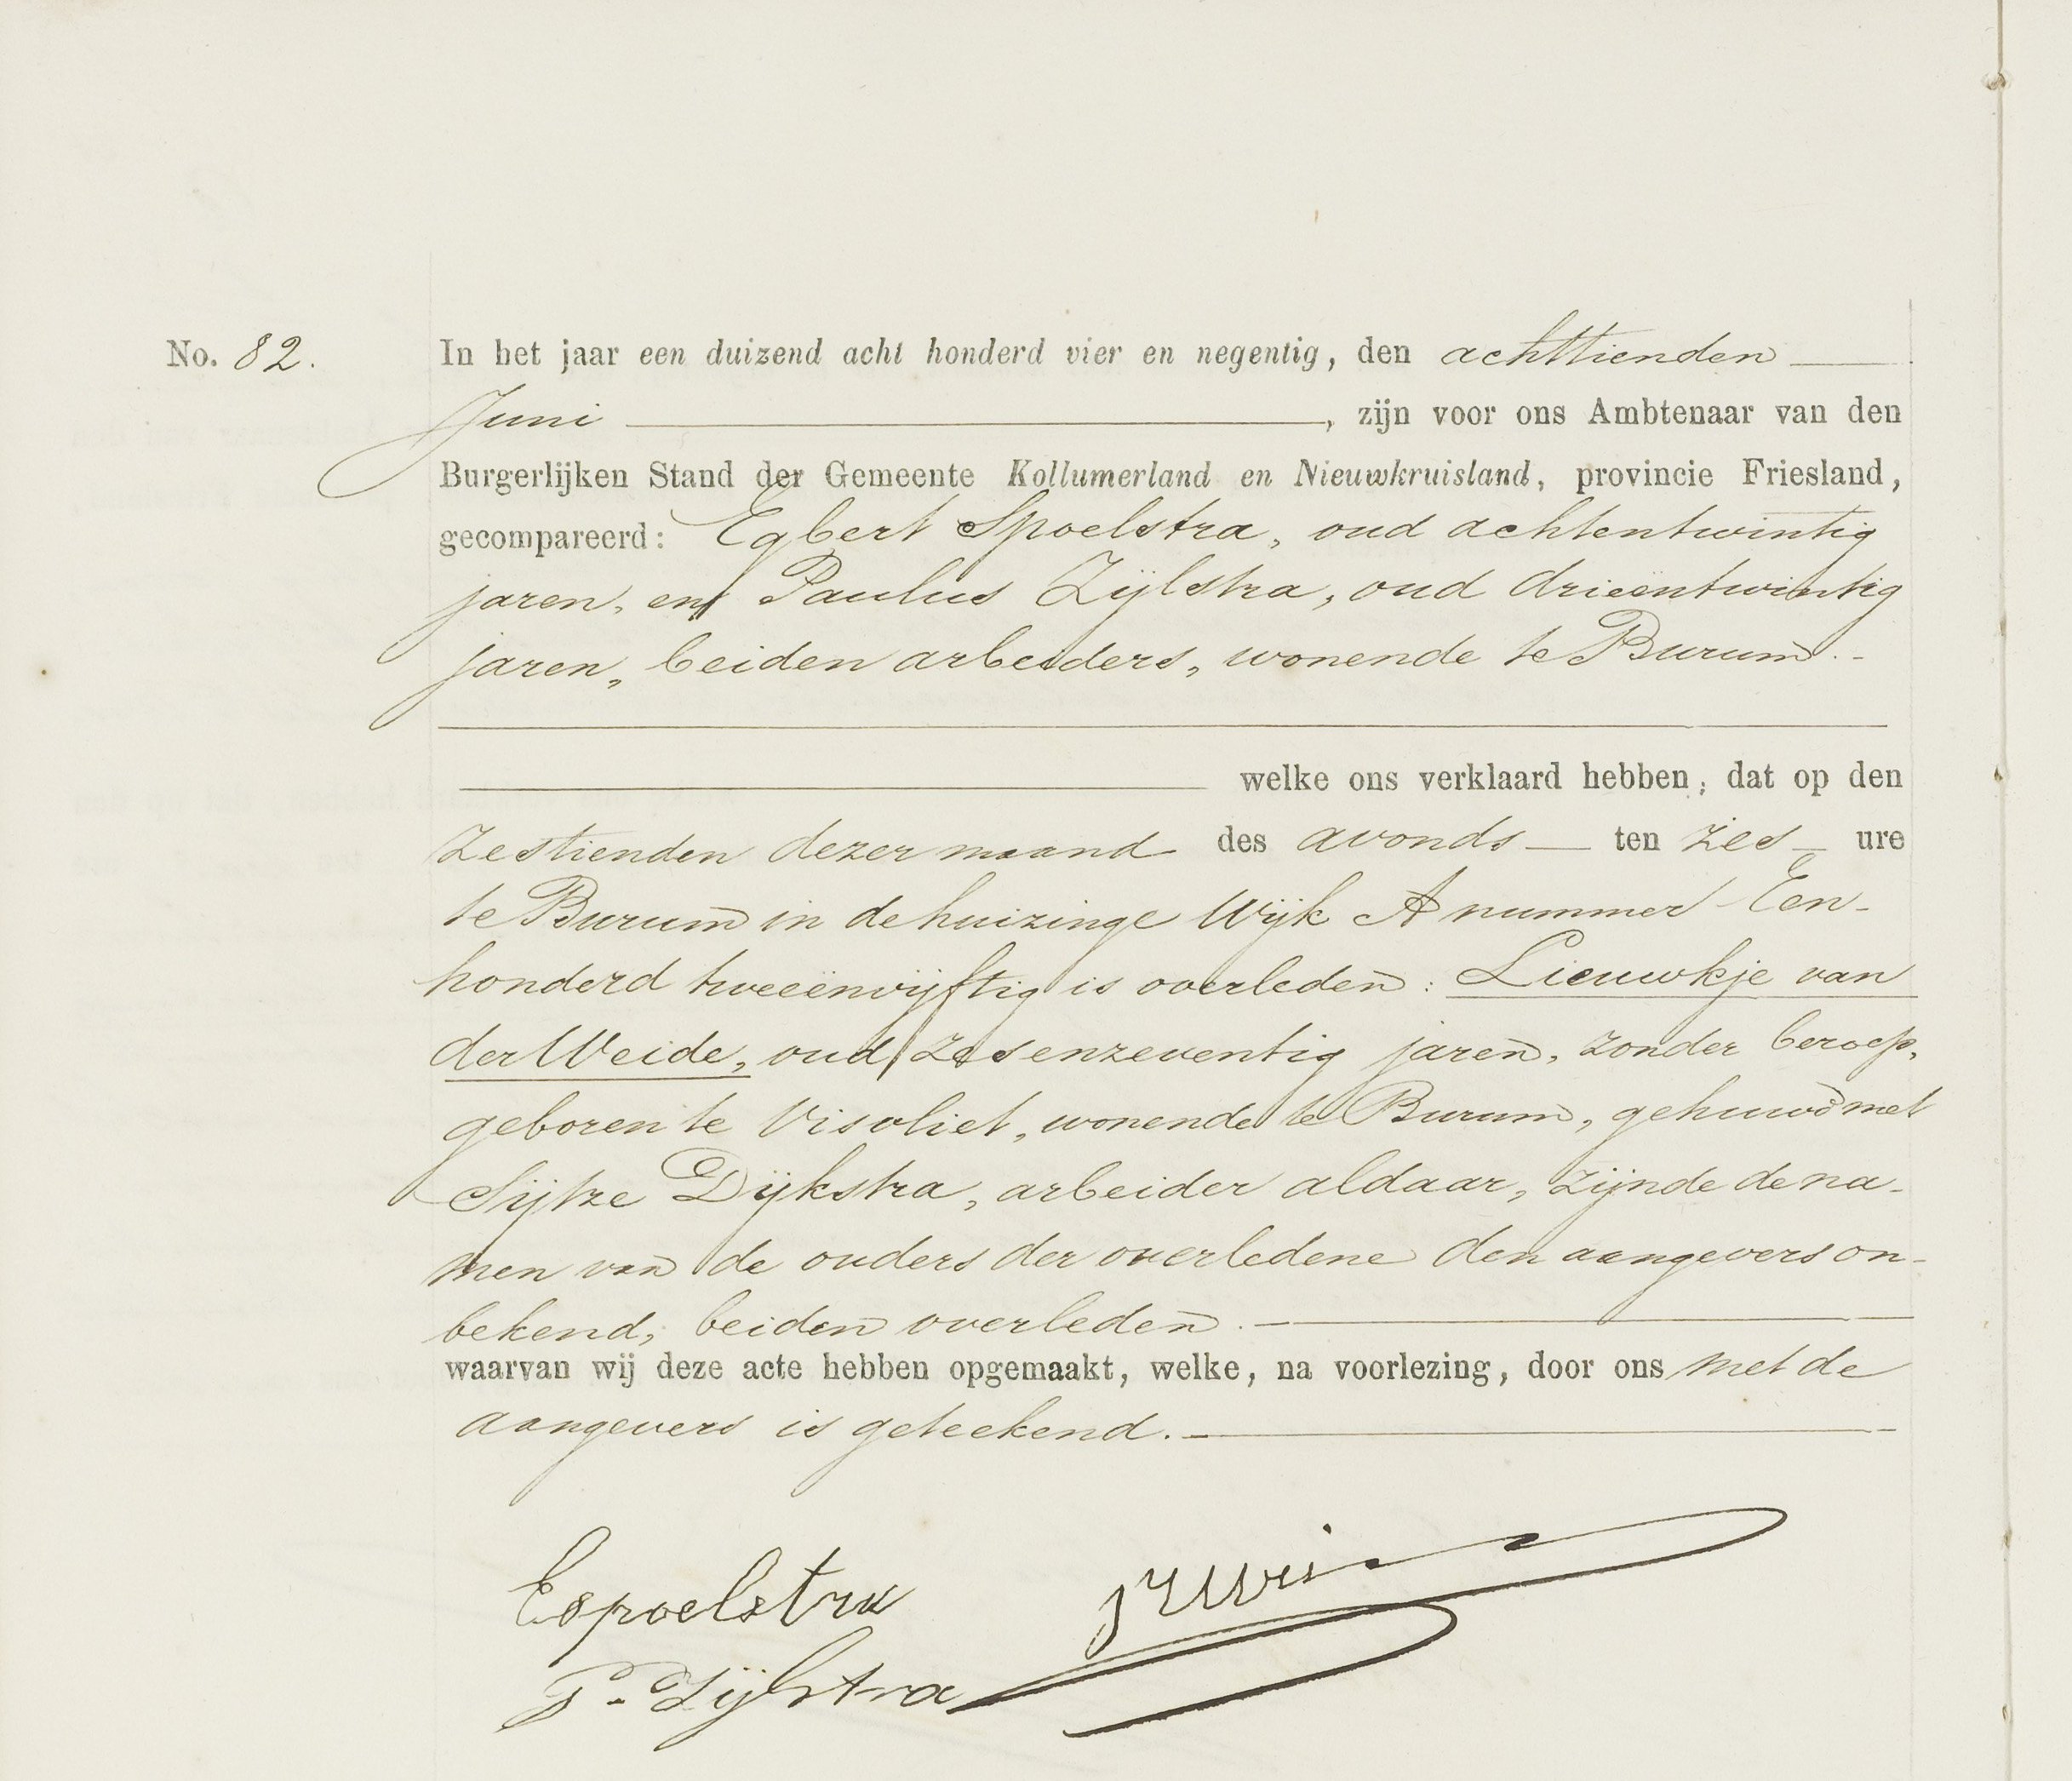 No. 82. In het jaar een duizend acht honderd vier en negentig, den achttienden
Juni, zijn voor ons Ambtenaar van den
Burgerlijken Stand der Gemeente Kollumerland en Nieuwkruisland, provincie Friesland,
gecompareerd: Egbert Spoelstra, oud achtentwintig
jaren, en Paulus Zijlstra, oud drieëntwintig
jaren, beiden arbeiders, wonende te Burum.
welke ons verklaard hebben, dat op den
zestienden dezer maand des avonds ten zes ure
te Burum in de huizinge Wijk A nummer Een-
honderd tweeënvijftig is overleden: Lieuwkje van
der Weide, oud zesenzeventig jaren, zonder beroep,
geboren te Visvliet, wonende te Burum, gehuwd met
Sijtze Dijkstra, arbeider aldaar, zijnde de na-
men van de ouders der overledene den aangevers on-
bekend, beiden overleden.
waarvan wij deze acte hebben opgemaakt, welke, na voorlezing, door ons met de
aangevers is geteekend.
E Spoelstra
P. Zijlstra